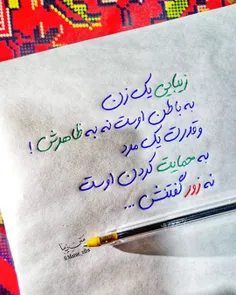 زیبایی یک زن
به باطن اوست نه به ظاهرش !
و قدرت یک مرد
به حمایت کردن اوست
نه زور گفتنش ...